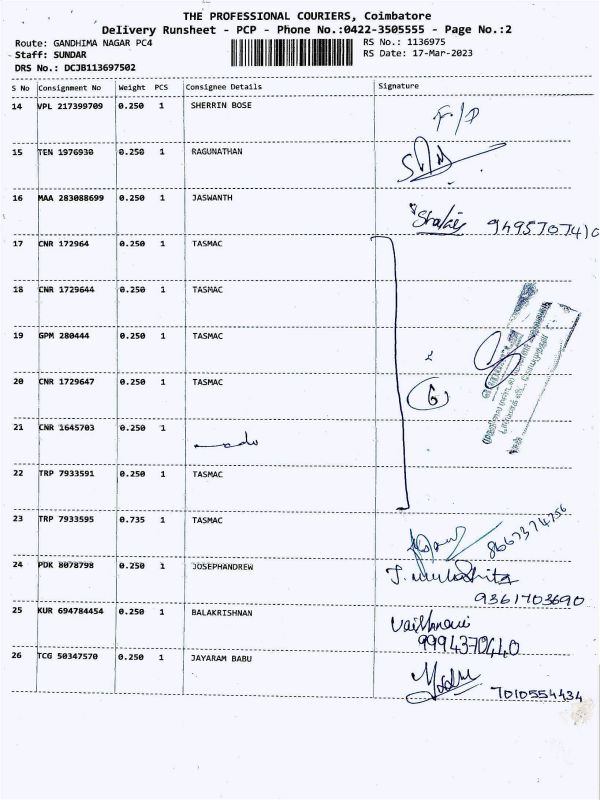 THE PROFESSIONAL COURIERS, Coimbatore
Delivery Runsheet - PCP - Phone No.:0422-3505555 - Page No.:2
Route: GANDHIMA NAGAR PC4 RS No.: 1136975
Staff: SUNDAR RS Date: 17-Mar-2023
DRS No.: DCJB113697502
S No Consignment No Weight PCS Consignee Details Signature
14 VPL 217399709 0.250 1 SHERRIN BOSE F/D
15 TEN 1976930 0.250 1 RAGUNATHAN
16 MAA 283088699 0.250 1 JASWANTH
9495707410
17 CNR 172964 0.250 1 TASMAC
18 CNR 1729644 0.250 1 TASMAC
19 GPM 280444 0.250 1 TASMAC
20 CNR 1729647 0.250 1 TASMAC 6
21 CNR 1645703 0.250 1
22 TRP 7933591 0.250 1 TASMAC
23 TRP 7933595 0.735 1 TASMAC
24 PDK 8078798 0.250 1 JOSEPHANDREW
9361703690
25 KUR 694784454 0.250 1 BALAKRISHNAN Vaishnavi
9994370440
26 TCG 50347570 0.250 1 JAYARAM BABU
7010554434